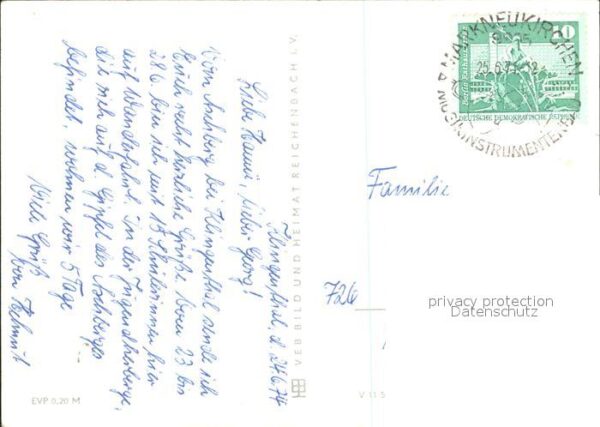 Klingenthal, d. 24.6.74
Liebe Hanni, lieber Georg!
Vom Aschberg bei Klingenthal sende ich
Euch recht herzliche Grüße. Vom 23. bis
28.6. bin ich mit 15 Schülerinnen hier
auf Wanderfahrt. In der Jugendherberge,
die sich auf d. Gipfel des Aschberges
befindet, wohnen wir 5 Tage
Viele Grüße
von Helmut
VEB BILD UND HEIMAT REICHENBACH I. V.
EVP 0,20 M
V 11 5
MARKNEUKIRCHEN
MUSIKINSTRUMENTEN
10
DEUTSCHE DEMOKRATISCHE
Familie
726
privacy protection
Datenschutz